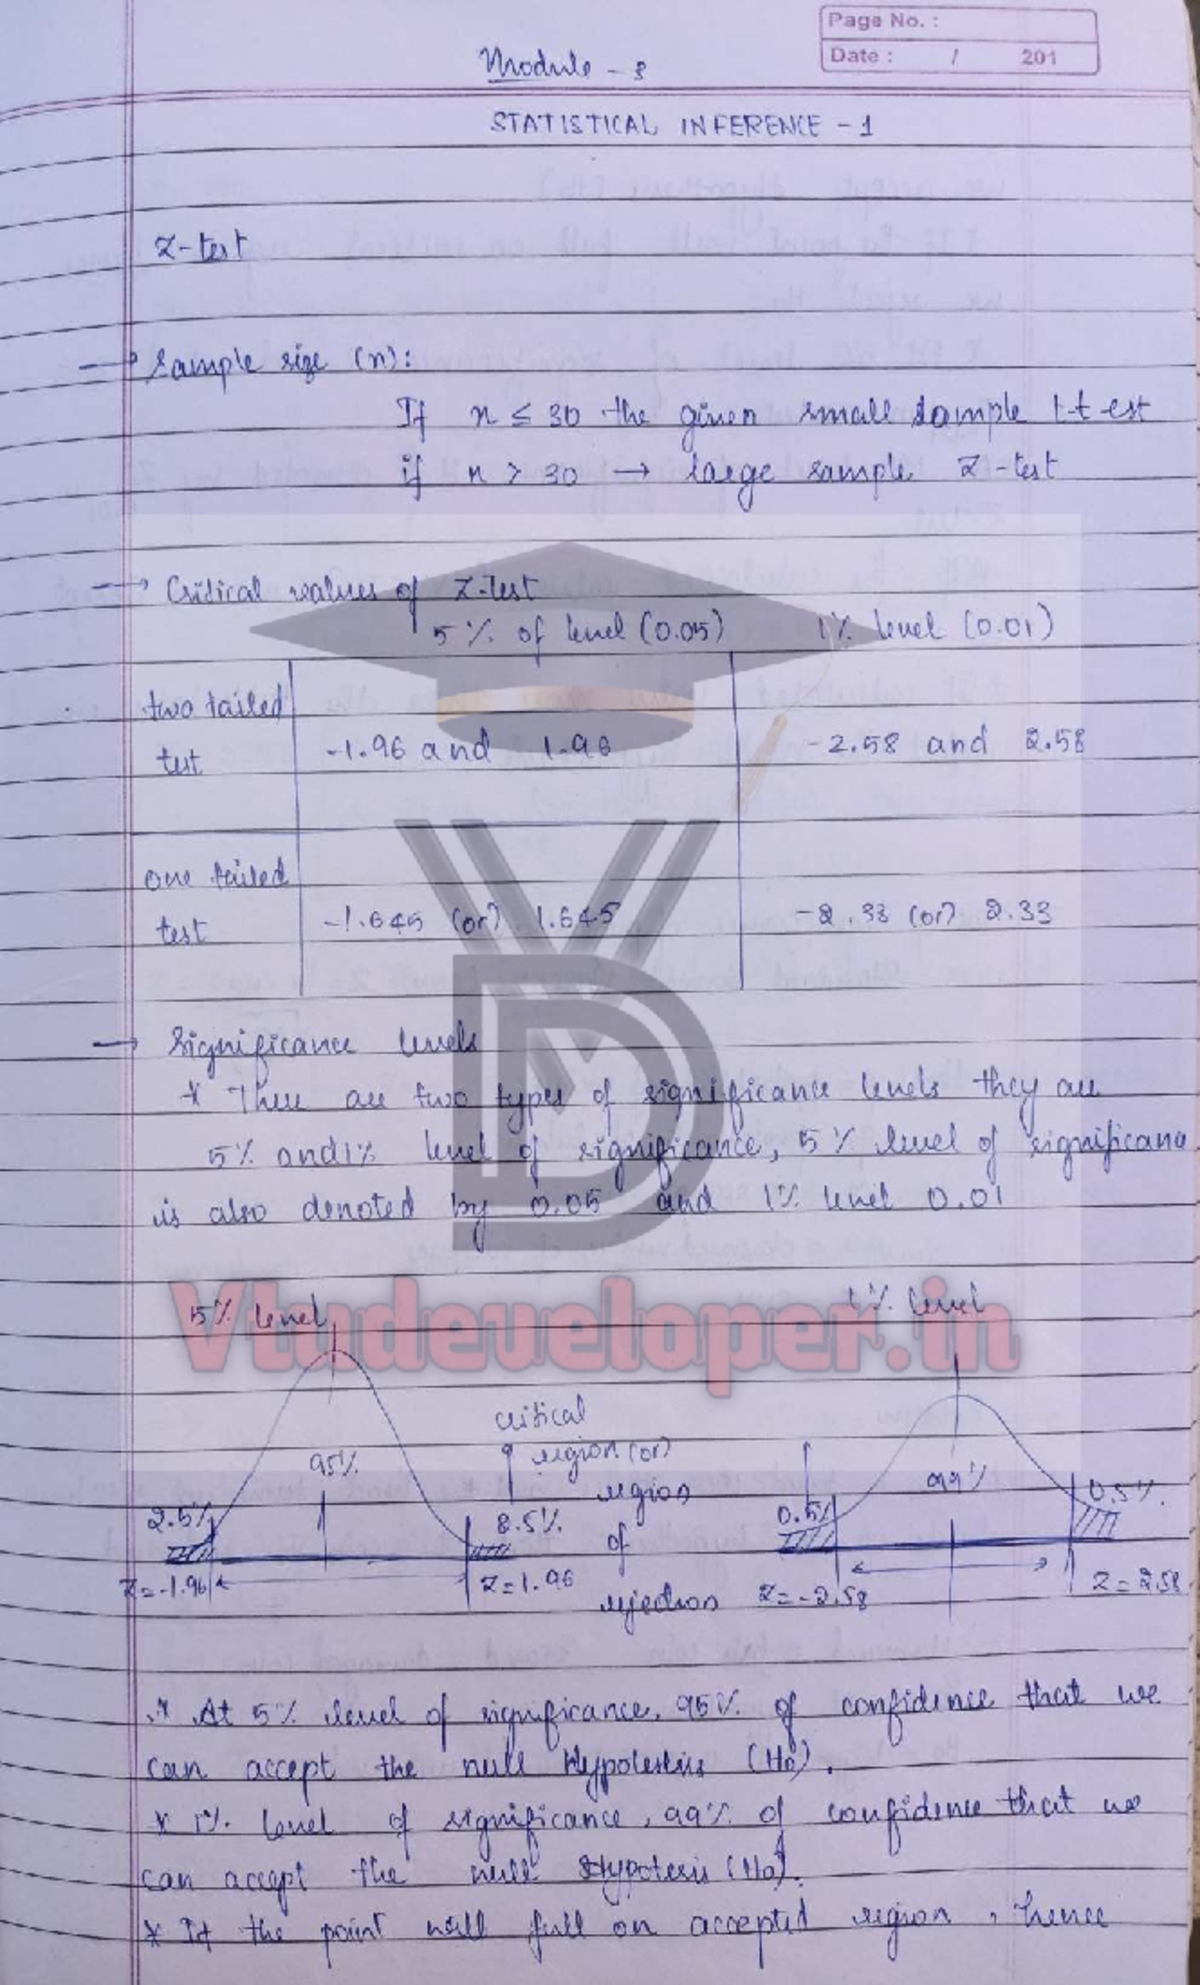 Page No. :
Date : / 201
Module - 3
STATISTICAL INFERENCE - 1
Z-test
→ Sample size (n):
If n ≤ 30 the given small sample t-test
if n > 30 → large sample Z-test
→ Critical values of Z-test
5% of level (0.05) 1% level (0.01)
two tailed
test -1.96 and 1.96 -2.58 and 2.58
one tailed
test -1.645 (or) 1.645 -2.33 (or) 2.33
→ Significance levels
* There are two types of significance levels they are
5% and 1% level of significance, 5% level of significance
is also denoted by 0.05 and 1% level 0.01
Vtudeveloper.in
5% level 1% level
critical
region (or)
region
of
rejection
95%
2.5% 2.5%
Z=-1.96 Z=1.96
99%
0.5% 0.5%.
Z=-2.58 Z=2.58
* At 5% level of significance, 95% of confidence that we
can accept the null (H0).
* 1% level of significance, 99% of confidence that we
can accept the null (H0).
* If the point will fall on accepted region, hence